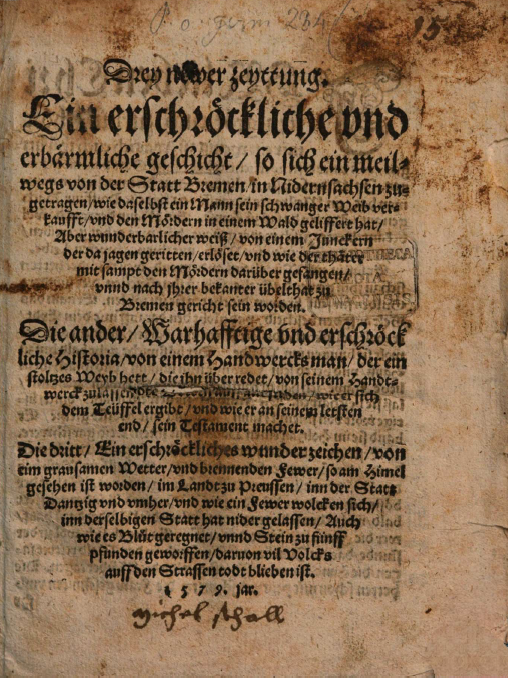 P. o. germ 234
15
Drey newer zeyttung.
Ein erschröckliche vnd
erbärmliche geschicht / so sich ein meil-
wegs von der Statt Bremen / in Nidernsachsen zu-
getragen / wie daselbst ein Mann sein schwanger Weib ver-
kaufft / vnd den Mördern in einem Wald geliffert hat /
Aber wunderbarlicher weiß / von einem Junckern
der da jagen geritten / erlöset / vnd wie der thäter
mit sampt den Mördern darüber gefangen /
vnnd nach jhrer bekanter übelthat zu
Bremen gericht sein worden.
Die ander / Warhafftige vnd erschröck
liche Historia / von einem Handwercks man / der ein
stoltzes Weyb hett / die jhn über redet / von seinem Handt-
werck zulassen / wie er sich
dem Teüffel ergibt / vnd wie er an seinem letsten
end / sein Testament machet.
Die dritt / Ein erschröckliches wunder zeichen / von
eim grausamen Wetter / vnd brennenden Fewer / so am Himel
gesehen ist worden / im Landt zu Preussen / inn der Statt
Dantzig vnd vmher / vnd wie ein Fewer wolcken sich /
inn derselbigen Statt hat nider gelassen / Auch
wie es Blůt geregnet / vnnd Stein zu fünff
pfunden geworffen / daruon vil Volcks
auff den Strassen todt blieben ist.
1579. jar.
Michel schall